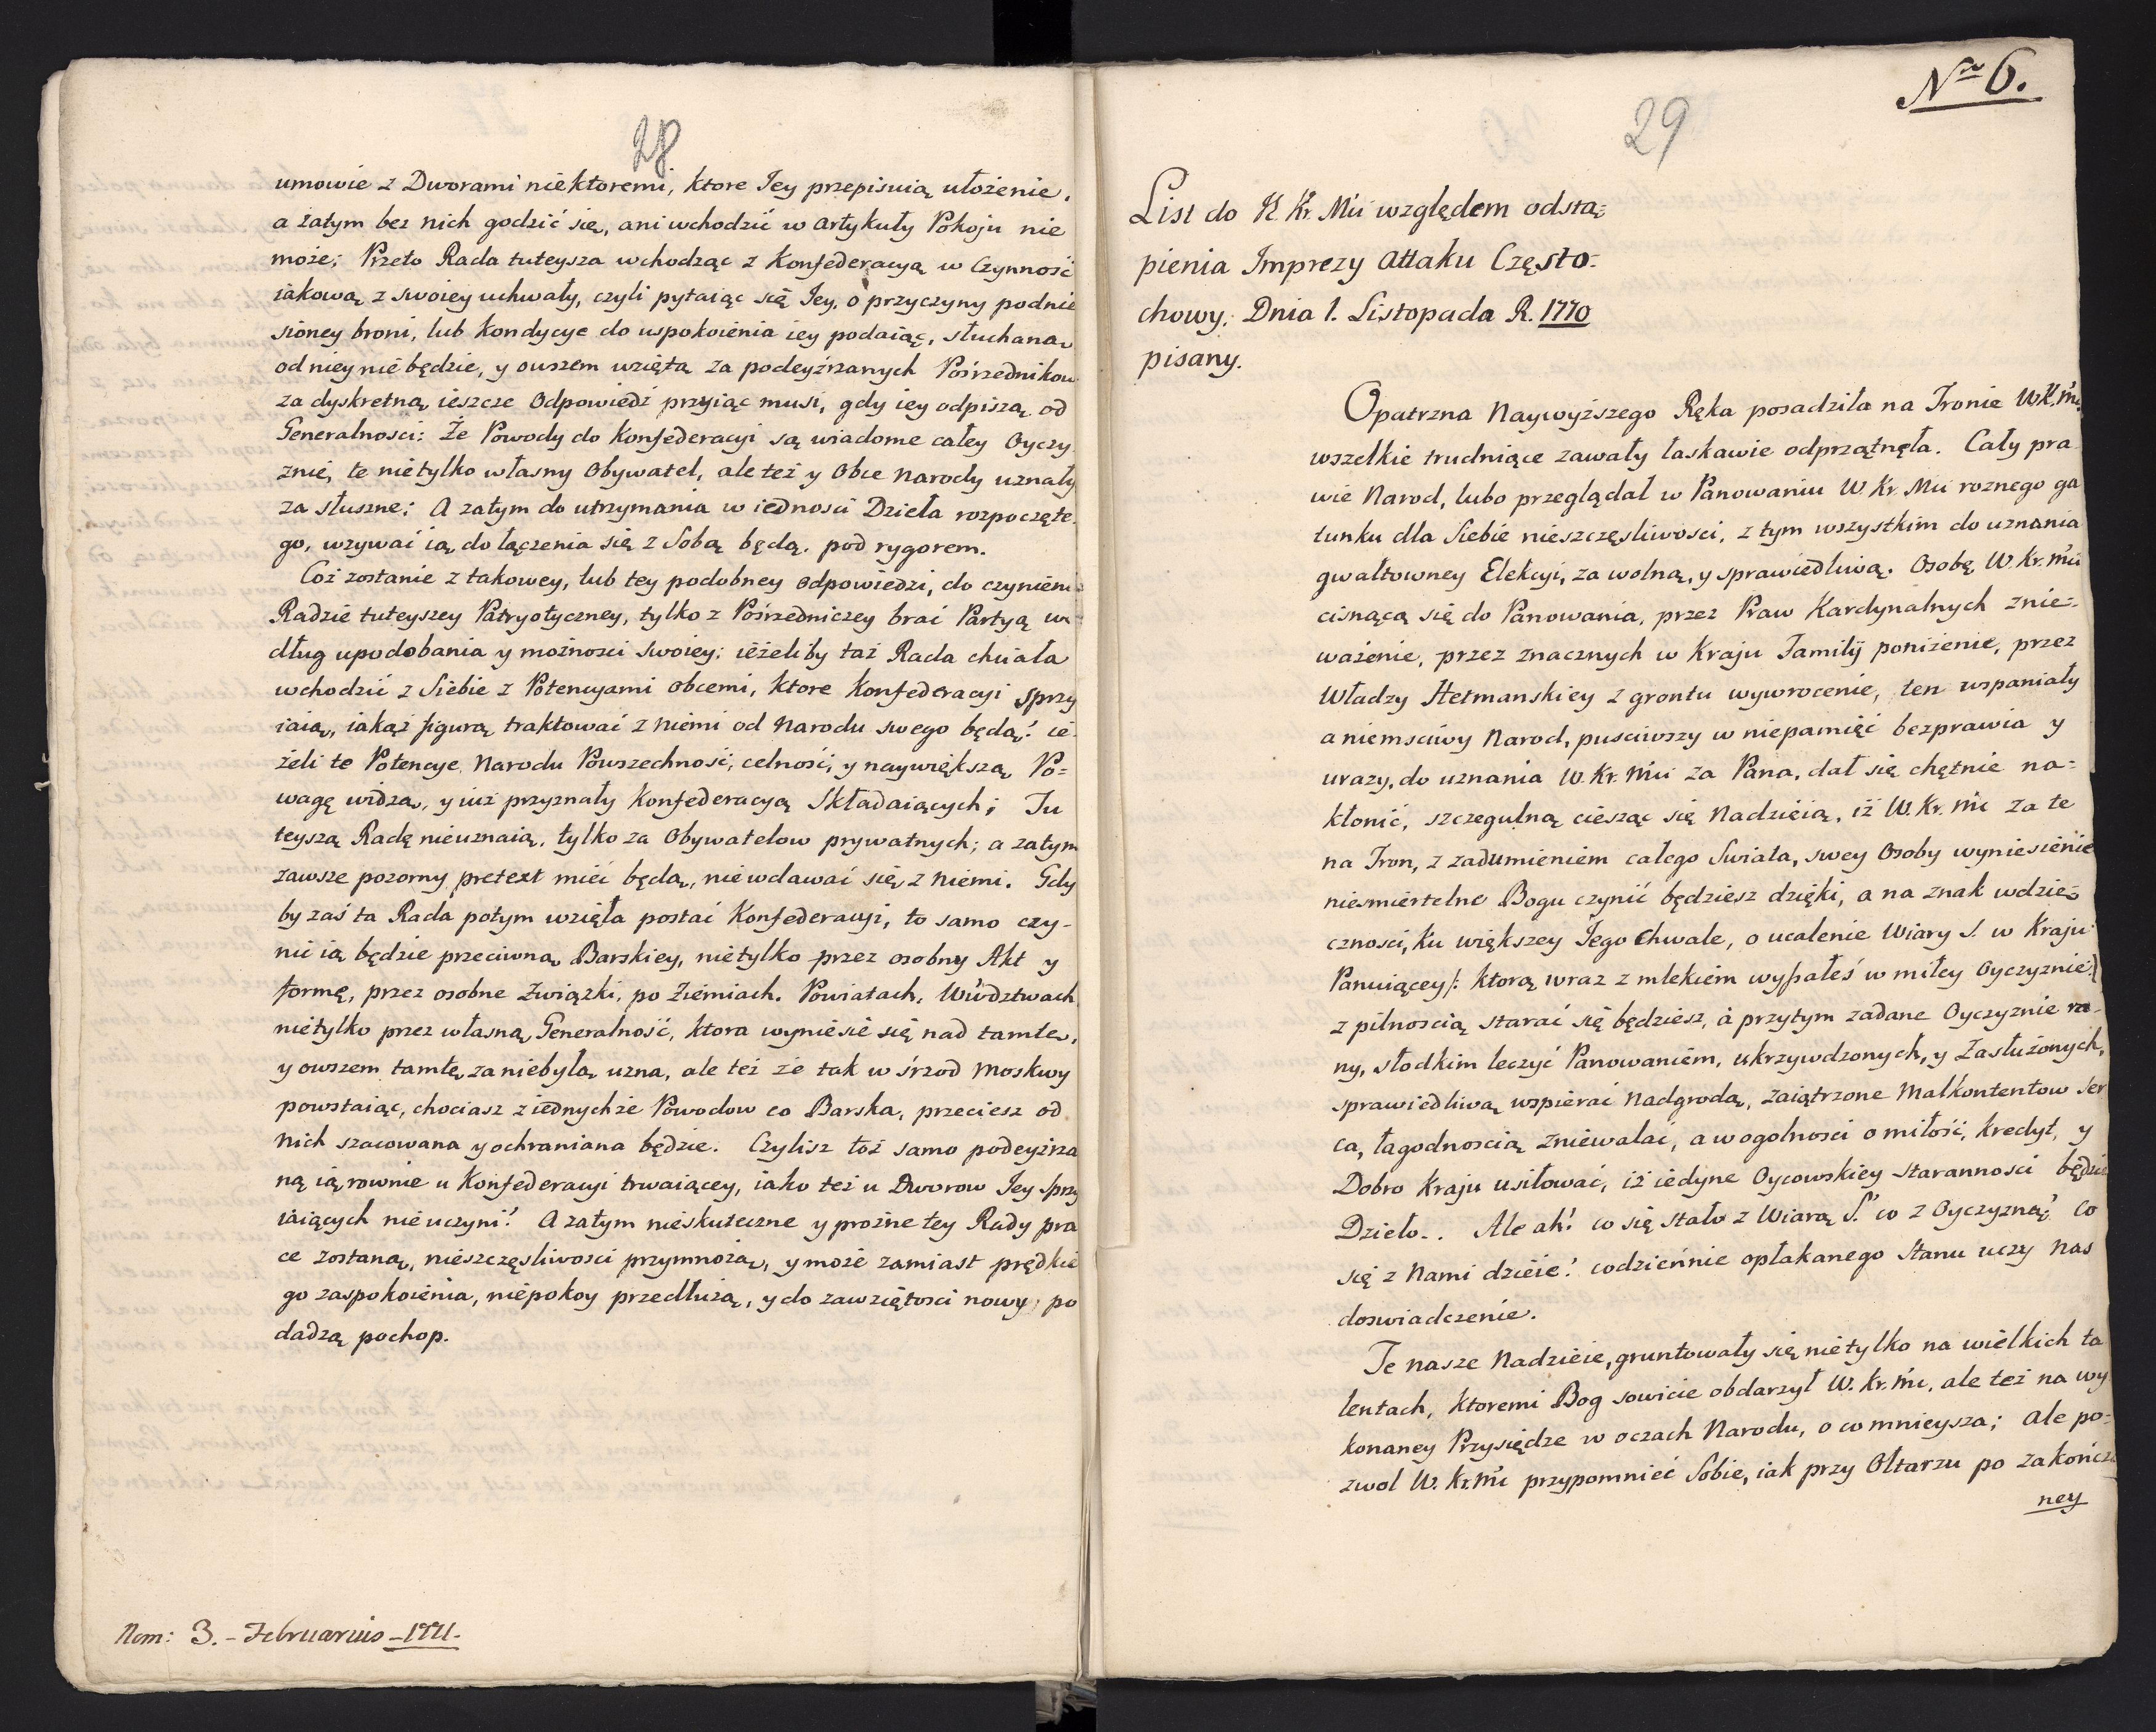 28
umowie z Dworami niektoremi, ktore Iey przepisuią ułożenie,
a zatym bez nich godzić się, ani wchodzić w Artykuły Pokoju nie
może; Przeto Rada tuteysza wchodząc z Konfederacyą w Czynność
iakową z swoiey uchwały, czyli pytaiąc się Iey, o przyczyny podnie
sioney broni, lub Kondycye do uspokoienia iey podaiąc, słuchaną
od niey nie będzie, y owszem wzięta za podeyźrzanych Pośrzednikow
za dyskretną ieszcze Odpowiedź przyiąc musi, gdy iey odpiszą od
Generalnosci: Że Powody do Konfederacyi są wiadome całey Oyczy
znie, te nietylko własny Obywatel, ale też y Obce Narody uznały
za słuszne; A zatym do utrzymania w iednosci Dzieła rozpoczęte
go, wzywać ią do łączenia się z Sobą będą, pod rygorem.
Coż zostanie z takowey, lub tey podobney Odpowiedzi, do czynieni
Radzie tuteyszey Patryotyczney, tylko z Pośrzedniczey brać Partyą we
dług upodobania y możnosci swoiey; ieżeliby taż Rada chciała
wchodzić z Siebie z Potencyami obcemi, ktore Konfederacyi sprzy
iaią, iakąż figurą traktować z niemi od Narodu swego będą? ie
żeli te Potencye Narodu Powszechność, celność, y naywiększą Po=
wagę widzą, y iuż przyznały Konfederacyą Składaiących; Tu
teyszą Radę nieuznaią, tylko za Obywatelow prywatnych; a zatym
zawsze pozorny pretext mieć będą, niewdawać się z niemi. Gdy
by zaś ta Rada potym wzięła postać Konfederacyi, to samo czy-
nić ią będzie przeciwną Barskiey, nietylko przez osobny Akt y
formę, przez osobne Związki, po Ziemiach. Powiatach, Wwdztwach
nietylko przez własną Generalność, ktora wyniesie się nad tamtę,
y owszem tamtę za niebyłą uzna, ale też że tak w śrzod Moskwy
powstaiąc, chociasz z iednychże Powodow co Barska, przeciesz od
Nich szacowana y ochraniana będzie. Czylisz toż samo podeyźrza
ną ią rownie u Konfederacyi trwaiącey, iako też u Dworow Iey sprzy
iaiących nie uczyni? A zatym nieskuteczne y prożne tey Rady pra
ce zostaną, nieszczęsliwosci przymnożą, y może zamiast prędkie
go zaspokoienia, niepokoy przedłużą, y do zawziętosci nowy po
dadzą pochop.
Nom: 3.-Februarius-1771.
Nro 6.
29
List do K Kr. Mci względem odstą=
pienia Imprezy Attaku Często=
chowy. Dnia 1. Listopada R. 1770
pisany.
Opatrzna Naywyższego Ręka posadziła na Tronie WK.Mc.
wszelkie trudniące zawały łaskawie odprzątnęła. Cały pra
wie Narod, lubo przeglądał w Panowaniu W. Kr. Mci roznego ga
tunku dla Siebie nieszczęsliwosci, z tym wszystkim do uznania
gwałtowney Elekcyi, za wolną, y sprawiedliwą. Osobę W. Kr. Mci
cisnącą się do Panowania, przez Praw Kardynalnych znie=
ważenie, przez znacznych w Kraju Familij poniżenie, przez
Władzy Hetmanskiey z gruntu wywrocenie, ten wspaniały
a niemsciwy Narod, pusciwszy w niepamięć bezprawia y
urazy, do uznania W. Kr. Mci za Pana, dał się chętnie na=
kłonić, szczegulną ciesząc się Nadzieią, iż W. Kr. Mc za te
na Tron, z zadumieniem całego Swiata, swey Osoby wyniesienie
niesmiertelne Bogu czynić będziesz dzięki, a na znak wdzię=
cznosci, ku większey Iego chwale, o ucalenie Wiary S. w Kraju
Panuiącey /: ktorą wraz z mlekiem wyssałeś w miłey Oyczyznie :/
z pilnoscią starać się będziesz, a przytym zadane Oyczyznie ra-
ny, słodkim leczyć Panowaniem, ukrzywdzonych, y Zasłużonych,
sprawiedliwą wspierać Nadgrodą, zaiątrzone Malkontentow Ser
ca, łagodnoscią zniewalać, a wogolnosci o miłość, kredyt, y
Dobro Kraju usiłować, iż iedyne Oycowskiey starannosci będzie
Dzieło.. Ale ah! co się stało z Wiarą S.? co z Oyczyzną? co
się z Nami dzieie? codziennie opłakanego Stanu uczy nas
doswiadczenie.
Te nasze Nadzieie, gruntowały się nietylko na wielkich ta
lentach, ktoremi Bog sowicie obdarzył W. Kr. Mc, ale też na wy
konaney Przysiędze w oczach Narodu, o co mnieysza; ale po=
zwol W. Kr. Mc przypomnieć Sobie, iak przy Ołtarzu po zakończo
ney